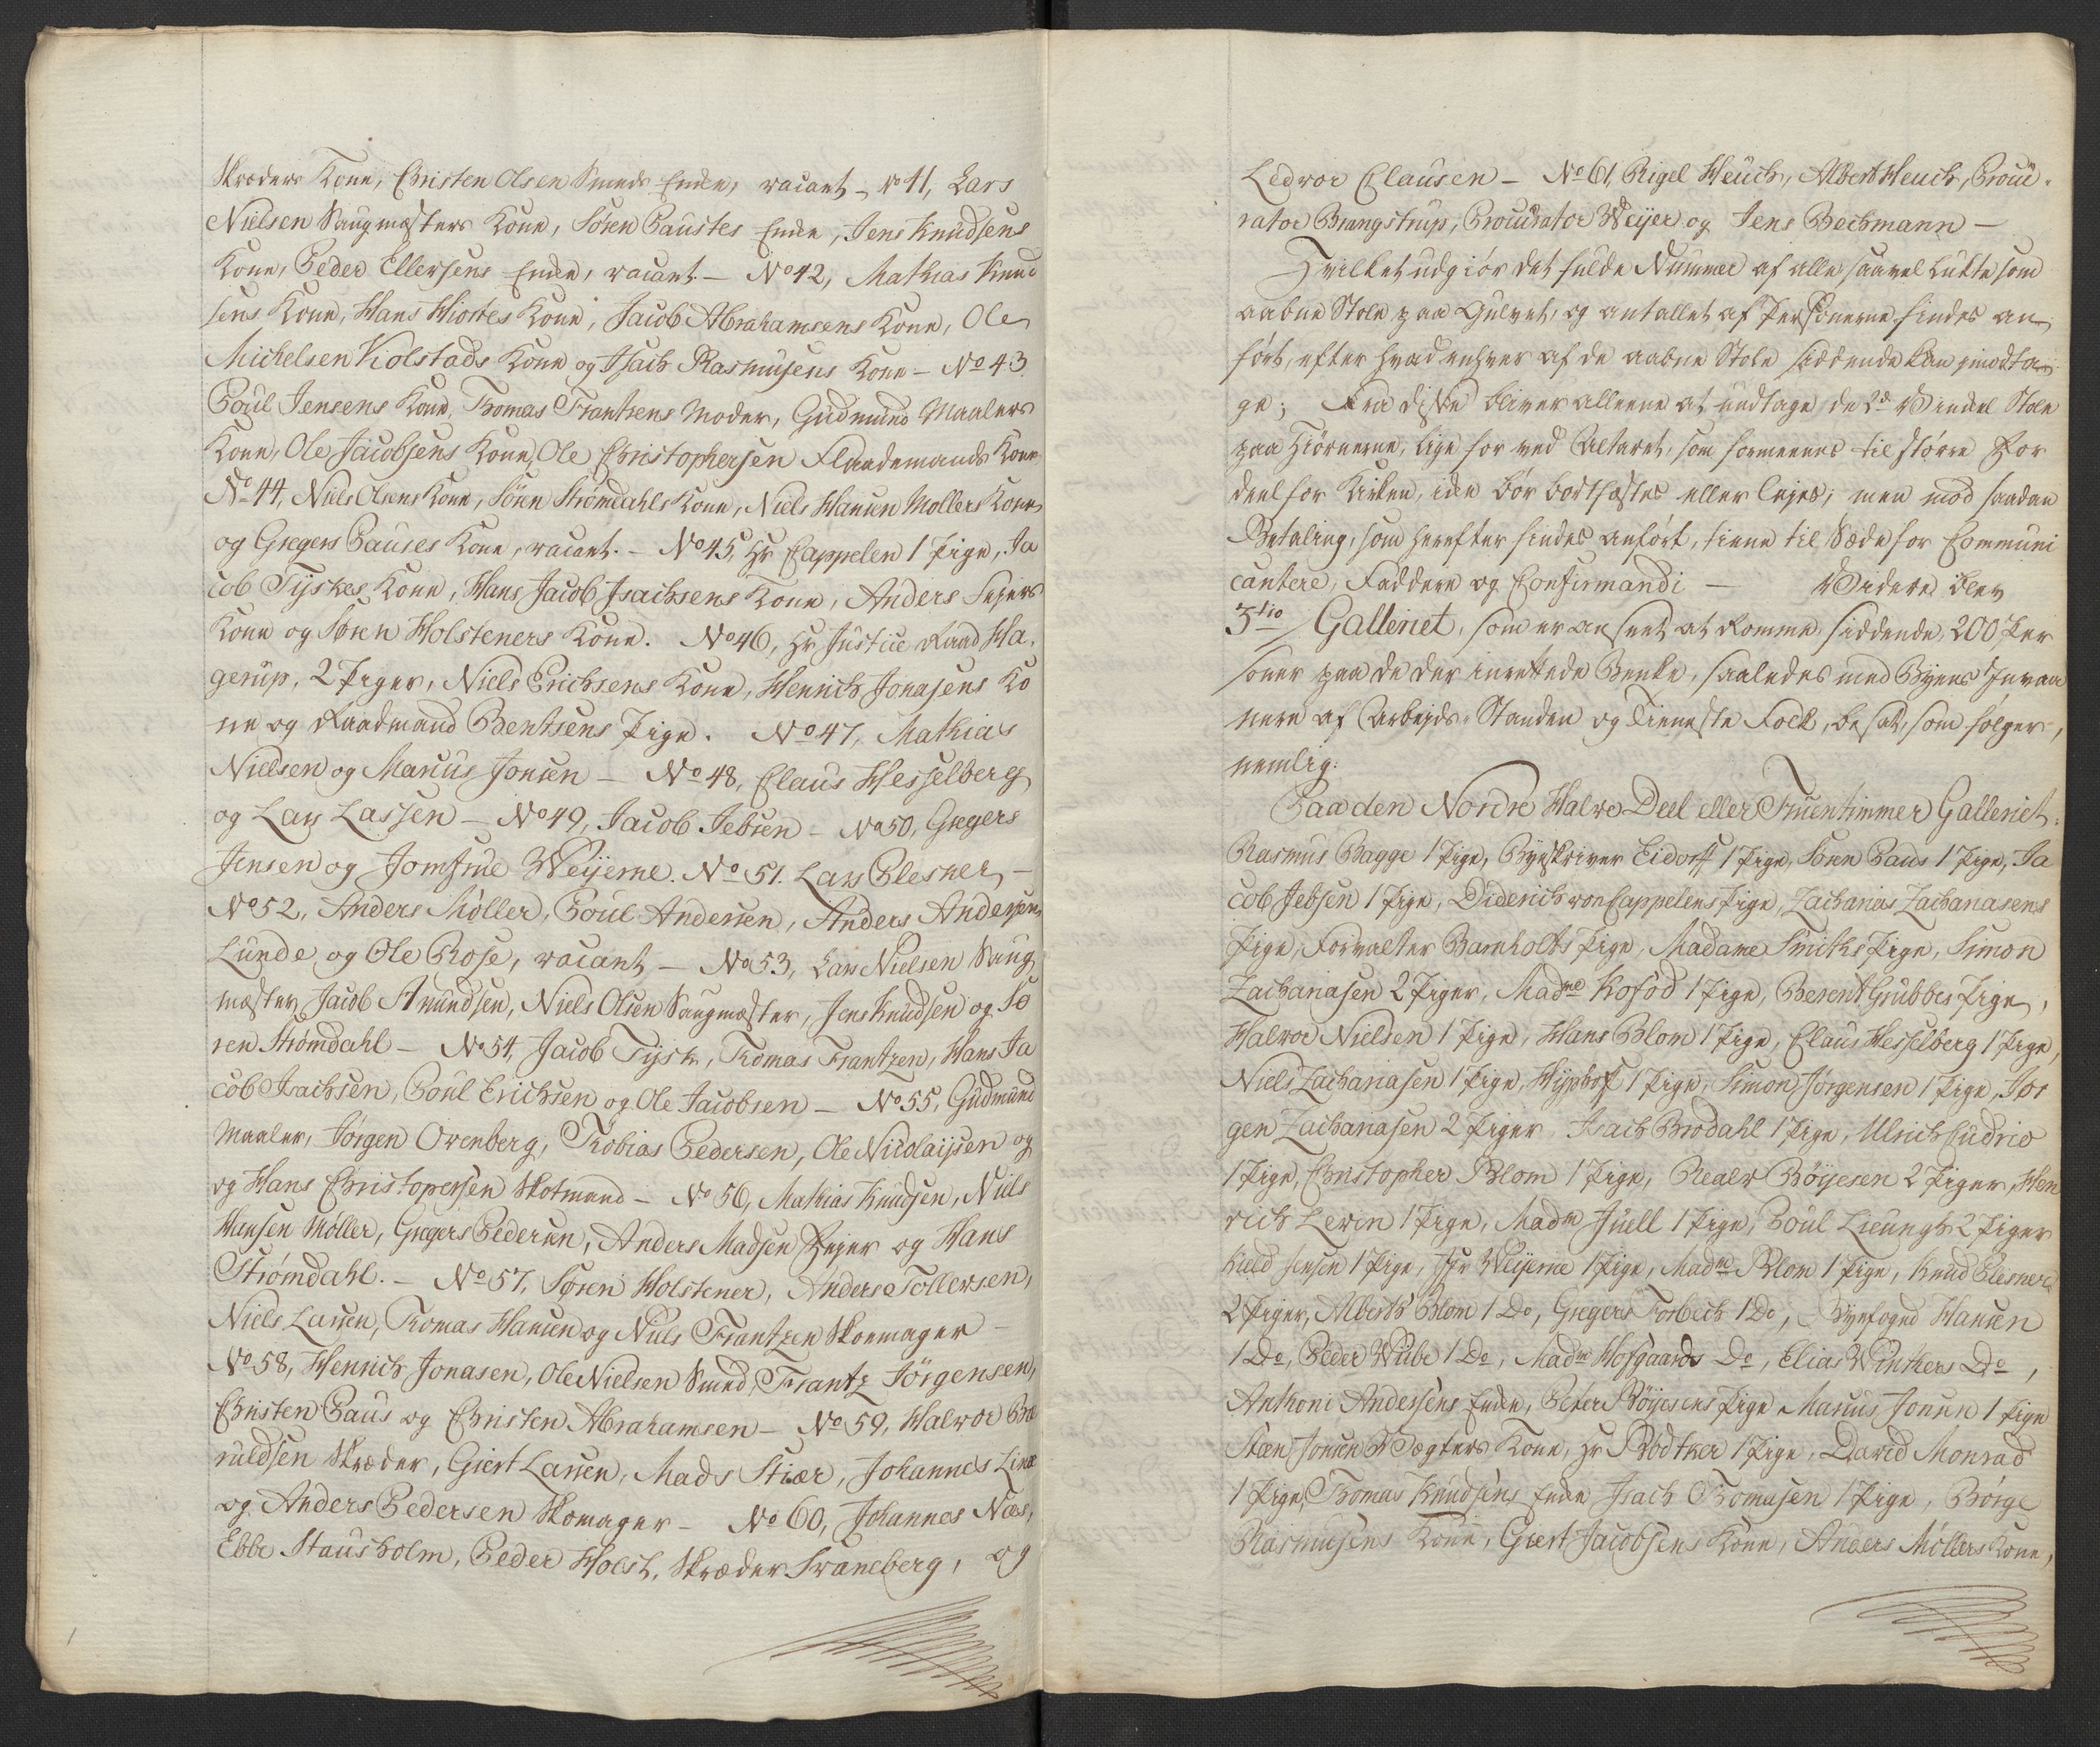 Skræders Kone, Christen Olsen Smeds Enke, vacant – No 41, Lars
Nielsen Saugmæsters Kone, Søren Paustes Enke, Jens Knudsens
Kone, Peder Ellersens Enke, vacant – No 42, Mathias Knud
sens Kone, Hans Hiortes Kone, Jacob Abrahamsens Kone, Ole
Michelsen Kiolstads Kone og Isach Rasmusens Kone – No 43.
Poul Jensens Kone, Thomas Frantzens Moder, Gudmund Maalers
Kone, Ole Jacobsens Kone, Ole Christophersen Flaademands Kone
No 44, Niels Olsens Kone, Sören Strömdahls Kone, Niels Hansen Mollers Kone
og Gregers Pauses Kone, vacant. – No 45, Hr Cappelen 1 Pige, Ja
cob Tyskes Kone, Hans Jacob Isachsens Kone, Anders Feyers
Kone og Søren Holsteners Kone. No 46, Hr Justice Raad Ha-
gerup, 2 Piger, Niels Erichsens Kone, Henrich Jonasens Ko
ne og Raadmand Bentsens Pige. No 47, Mathias
Nielsen og Marcus Jonsen – No 48, Claus Hesselberg
og Lars Lassen – No 49, Jacob Jebsen – No 50, Gregers
Jensen og Jomfrue Weyerne. No 51. Lars Plesner –
No 52, Anders Møller, Poul Andersen, Anders Andersen
Lunde og Ole Rose, vacant – No 53, Lars Nielsen Saug
mæster, Jacob Amundsen, Niels Olsen Saugmæster, Jens Knudsen og Sö
ren Strömdahl – No 54, Jacob Tysk, Thomas Frantzen, Hans Ja
cob Isachsen, Poul Erichsen og Ole Jacobsen – No 55, Gudmund
Maaler, Jörgen Orenberg, Thobias Pedersen, Ole Nicolaijsen og
og Hans Christopersen Skotmand – No 56, Mathias Knudsen, Niels
Hansen Møller, Gregers Pedersen, Anders Madsen Fejer og Hans
Strömdahl. – No 57, Søren Holstener, Anders Tollevsen,
Niels Larsen, Thomas Hansen og Niels Frantzen Skomager –
No 58, Henrich Jonasen, Ole Nielsen Smed, Frantz Jörgensen,
Christen Paus og Christen Abrahamsen – No 59, Halvor
ruldsen Skræder, Giert Larsen, Mads Stiær, Johannes Linæ
og Anders Pedersen Skomager – No 60, Johannes Næs,
Ebbe Stausholm, Peder Holst, Skræder Svaneberg, og
Ledvor Clausen – No 61, Rigel Heuch, Albert Heuch, Procu-
rator Brangstrup, Procurator Weyer og Jens Bechmann –
Hvilket udgiör det fulde Nummer af alle saavel Lukte som
aabne Stole paa Gulvet, og antallet af Personerne findes an
fört, efter hvad enhver af de aabne Stole siddende kan imodta
ge; Fra diske bliver alleene at undtage de 2de Vindvel Stole
paa Hiörnerne, lige for ved Altaret, som formeenes til större For
deel for Kirken, ikke bör bortfæstes eller lejes; men mod saadan
Betaling, som herefter findes anfört, tiene til Sæde for Communi
cantere, Faddere og Confirmandi – Videre blev
3tio/ Galleriet, som er anseet at komme siddende 200 Per
soner paa de der inrettede Benke, saaledes med Byens Invaa
nere af Arbejds-Standen og Tieneste Folk, besat, som fölger,
nemlig:
Paa den Nordre Halve Deel eller Fruentimmer Galleriet.
Rasmus Bagge 1 Pige, Byskriver Eidorff 1 Pige, Sönn Paus 1 Pige, Ja
cob Jebsen 1 Pige, Diderich von Cappelens Pige, Zacharias Zachariasens
Pige, Forvalter Barnholts Pige, Madame Smiths Pige, Simon
Zachariasen 2 Piger, Madme Kofod 1 Pige, Berent Grubbes Pige,
Halvor Nielsen 1 Pige, Hans Blom 1 Pige, Claus Hesselberg 1 Pige,
Niels Zachariasen 1 Pige, Hyphoff 1 Pige, Simon Jörgensen 1 Pige, Jör
gen Zachariasen 2 Piger, Isach Brodahl 1 Pige, Ulrich Cudrio
1 Pige, Christopher Blom 1 Pige, Realv Böyesen 2 Piger, Hen
rich Levin 1 Pige, Madm Juell 1 Pige, Poul Lieungh 2 Piger
Kield Jensen 1 Pige, Jfr Weyerne 1 Pige, Madme Blom 1 Pige, Knud Plesner
2 Piger, Alberth Blom 1 Do, Gregers Forbech 1 Do, Byefoged Hansen
1 Do, Peder Wibe 1 Do, Madm Hofgaards Do, Elias Winthers Do,
Anthoni Andersens Enke, Peter Böyesens Pige Marcus Jonsen 1 Pige
Steen Jonsen Vægters Kone, Hr Bödtker 1 Pige, David Monrad
1 Pige, Thomas Knudsens Enke Isach Thomasen 1 Pige, Börge
Rasmusens Kone, Giert Jacobsens Kone, Anders Möllers Kone,